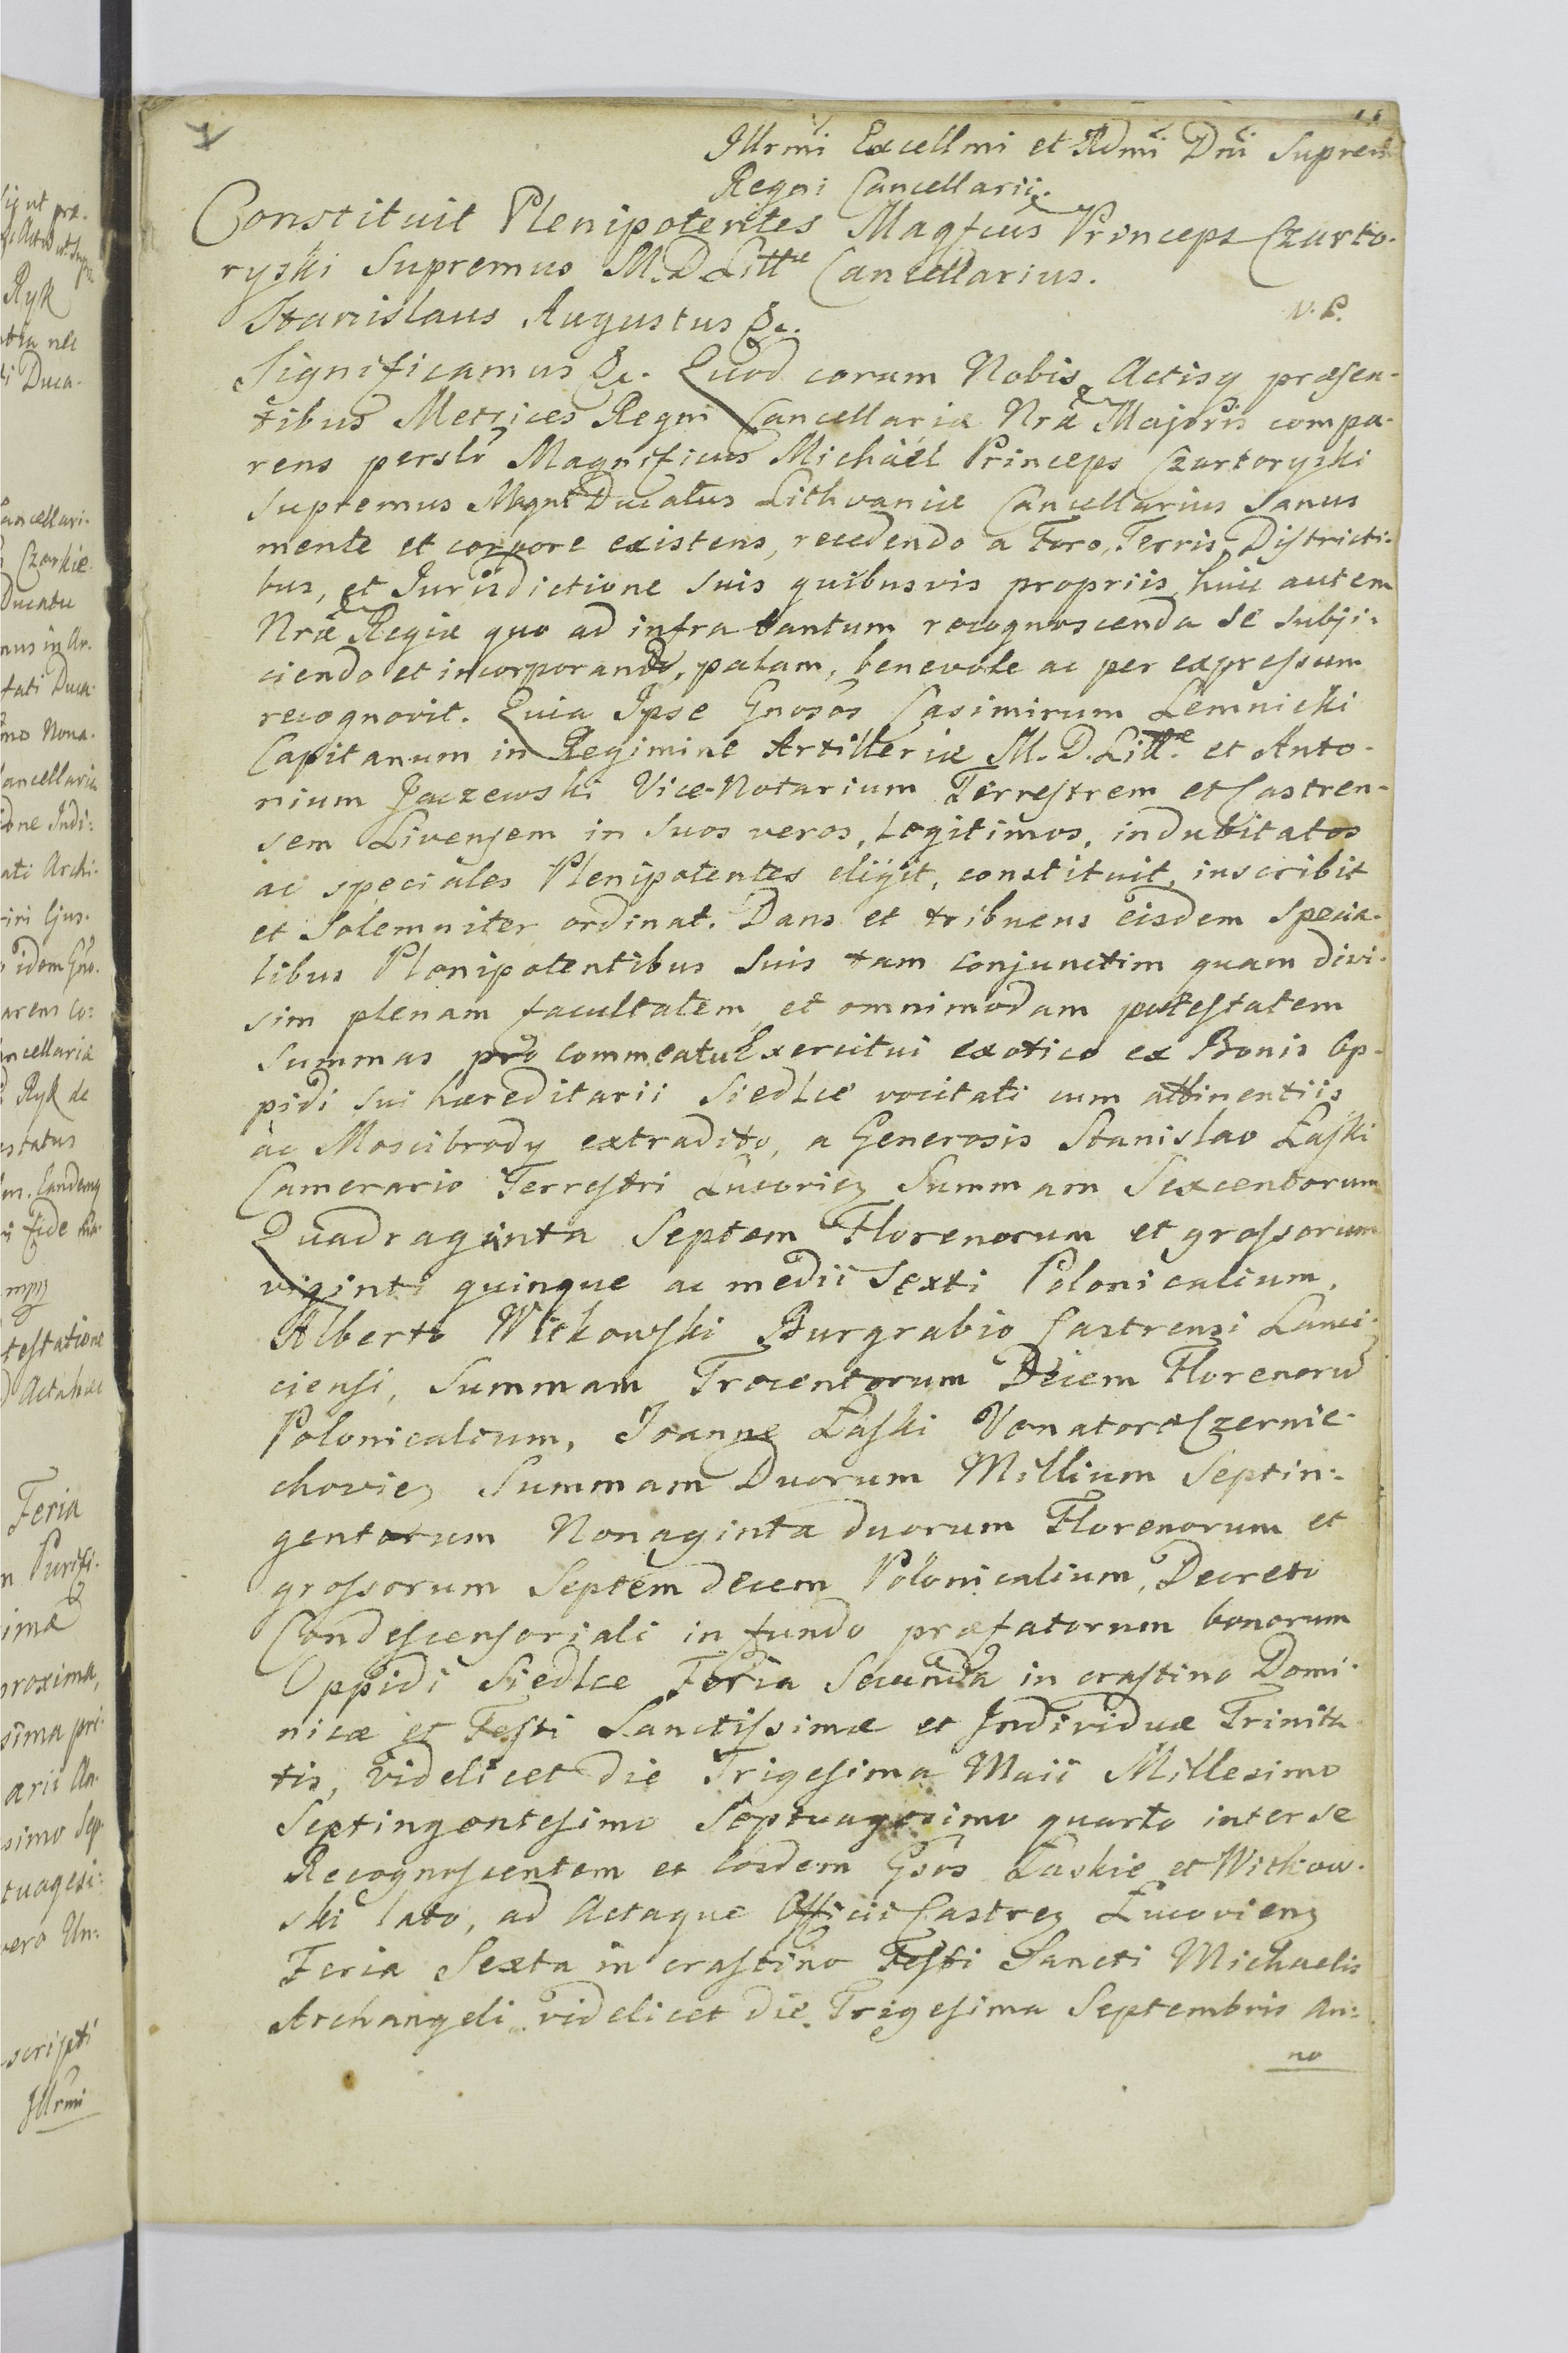 Illrmi Excellmi et Rdmi Dni Supremi
Regni Cancellarii.
Constituit Plenipotentes Magficus Princeps Czarto-
ryski Supremus M.D.Littæ Cancellarius.
Stanislaus Augustus &c.
Significamus &c. Quod coram Nobis, Actisq præsen-
tibus Metrices Regni Cancellariæ Nræ Majoris compa-
rens perslr Magnificus Michäel Princeps Czartoryski
Supremus Magni Ducatus Lithvaniæ Cancellarius Sanus
mente et corpore existens, recedendo a Foro, Terris, Districti-
bus, et Jurisdictione suis quibusvis propriis, huic autem
Nræ Regiæ quo ad infra tantum recognoscenda se subji-
ciendo et incorporando, palam, benevole ac per expressum
recognovit. Quia Ipse Gnosos Casimirum Lemnicki
Capitanum in Regimine Artilleriæ M.D.Littæ. et Anto-
nium Jaczewski Vice-Notarium Terrestrem et Castren-
sem Livensem in suos veros, Legitimos, indubitatos
ac speciales Plenipotentes eligit, constituit, inscribit
et Solemniter ordinat. Dans et tribuens eisdem specia-
libus Plenipotentibus suis tam conjunctim quam divi-
sim plenam facultatem et omnimodam potestatem
summas pro commeatu Exercitui exotico ex Bonis Op-
pidi sui hæreditarii Siedlce vocitati cum attinentiis
ac Moscibrody extradito, a Generosis Stanislao Łaski
Camerario Terrestri Lucorien Summam Sexcentorum
Quadraginta Septem Florenorum et grossorum
viginti quinque ac medii Sexti Polonicalium,
Alberto Witkowski Burgrabio Castrensi Lanci-
ciensi, Summam Trecentorum Decem Florenorū
Polonicalium, Joanne Łaski Venatore Czernie-
chovien Summam Duorum Millium Septin-
gentorum Nonaginta duorum Florenorum et
grossorum Septem decem Polonicalium, Decreto
Condescensoriali in fundo præfatorum bonorum
Oppidi Siedlce Feria Secunda in crastino Domi-
nicæ et Festi Sanctissimæ et Individuæ Trinita-
tis, videlicet die Trigesima Maii Millesimo
Septingentesimo Septuagesimo quarto inter se
Recognoscentem et eosdem Gsos Łaskie et Witkow-
ski lato, ad Actaque Officii Castren Lucovien
Feria Sexta in crastino Festi Sancti Michaelis
Archangeli videlicet die Trigesima Septembris An-
no